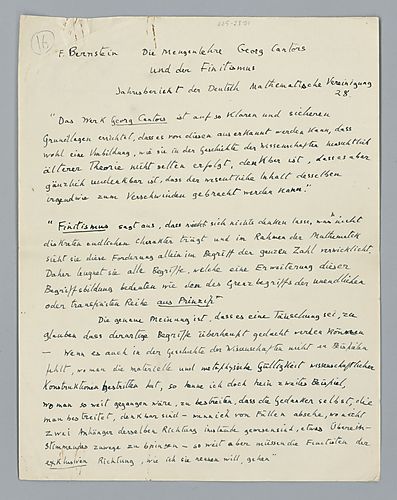 16
F. Bernstein Die Mengenlehre Georg Cantors
und der Finitismus
Jahresbericht der Deutsch Mathematische Vereinigung
28.
"Das Werk Georg Cantors ist auf so klaren und sicheren
Grundlagen errichtet, dass es von diesen aus erkannt werden kann, dass
wohl eine Umbildung, wie sie in der Geschichte der Wissenschaften hinsichtlich
älterer Theorie nicht selten erfolgt, denkbar ist, dass es aber
gänzlich undenkbar ist, dass der wesentliche Inhalt desselben
irgendwie zum Verschwinden gebracht werden kann."
"Finitismus sagt aus, dass sich nichts denken lasse, was nicht
diskreten endlichen Charakter trägt und im Rahmen der Mathematik
sieht sie diese Forderung allein im Begriff der ganzen Zahl verwirklicht.
Daher leugnet sie alle Begriffe, welche eine Erweiterung dieser
Begriffsbildung bedeuten wie den des Grenzbegriffs der unendlichen
oder transfiniten Reihe aus Prinzip"
Die genaue Meinung ist, dass es eine Täuschung sei, zu
glauben dass derartige Begriffe überhaupt gedacht werden können
— Wenn es auch in der Geschichte der Wissenschaften nicht an Beispielen
fehlt, wo man die materielle und metaphysische Gültigkeit wissenschaftlicher
Konstruktionen bestritten hat, so kenne ich doch kein zweites Beispiel,
wo man so weit gegangen wäre, zu bestreiten dass die Gedanken selbst, die
man bestreitet, denkbar sind — wenn ich von Fällen absehe, wo nicht
zwei Anhänger derselben Richtung imstande gewesen sind, etwas Überein-
stimmendes zuwege zu bringen — so weit aber müssen die Finitisten der
exklusiven Richtung, wie ich sie nennen will, gehen"